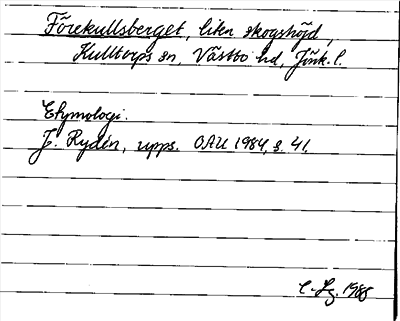 Förekullsberget, liten skogshöjd,
Kulltorps sn, Västbo hd, Jönk. l.
Etymologi.
J. Rydén, upps. OAU 1984, s. 41.
1988